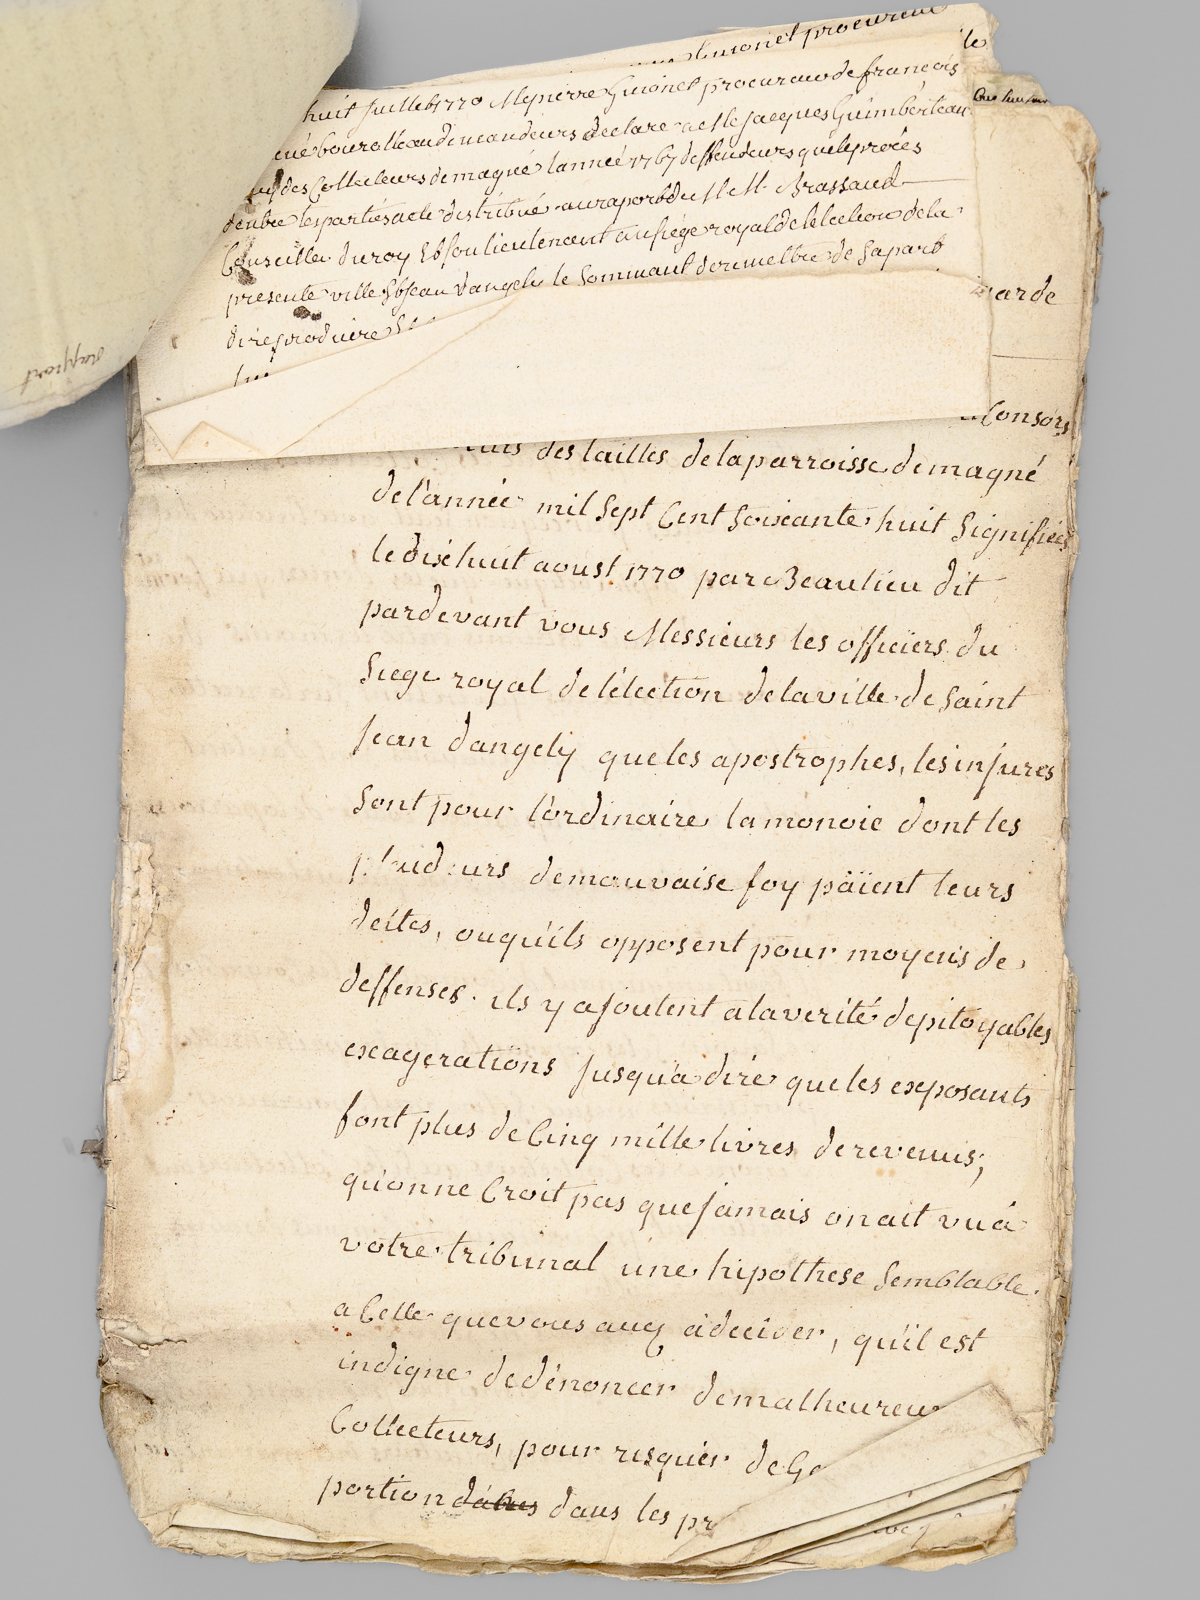 monet procureur
le
huit Juillet 1770 Me pierre Guionet procureur de françois
bourolleau demandeurs declare a Me Jacques Guimberteau
des Collecteurs de magné lannée 1767 deffendeurs quele procés
dentre les parties a ete distribué au raport de M M. Brassaud
Conseiller du roy Et son lieutenant au siége royal de lelection de la
presente ville St Jean dangely le sommant de remettre de sa part
dire produire
lui
garde
Consors
des tailles de la parroisse de magné
de l'année mil Sept Cent Soixante huit Signifiées
le dixhuit aoust 1770 par Beaulieu dit
pardevant vous Messieurs les officiers du
Siege royal de l'élection de la ville de Saint
Jean dangely que les apostrophes, les injures
Sont pour l'ordinaire la monoie dont les
plaideurs de mauvaise foy païent leurs
dettes, ou qu'ils opposent pour moyens de
deffenses. ils y ajoutent a la verité de pitoyables
exagerations jusqu'a dire que les exposants
font plus de Cinq mille livres de revenus;
qu'on ne Croit pas que jamais on ait vu à
votre tribunal une hipothese Semblable
a Celle que vous avez à decider, qu'il est
indigne de dénoncer de malheureux
Collecteurs, pour risquer de
portion dans les pr
rapport